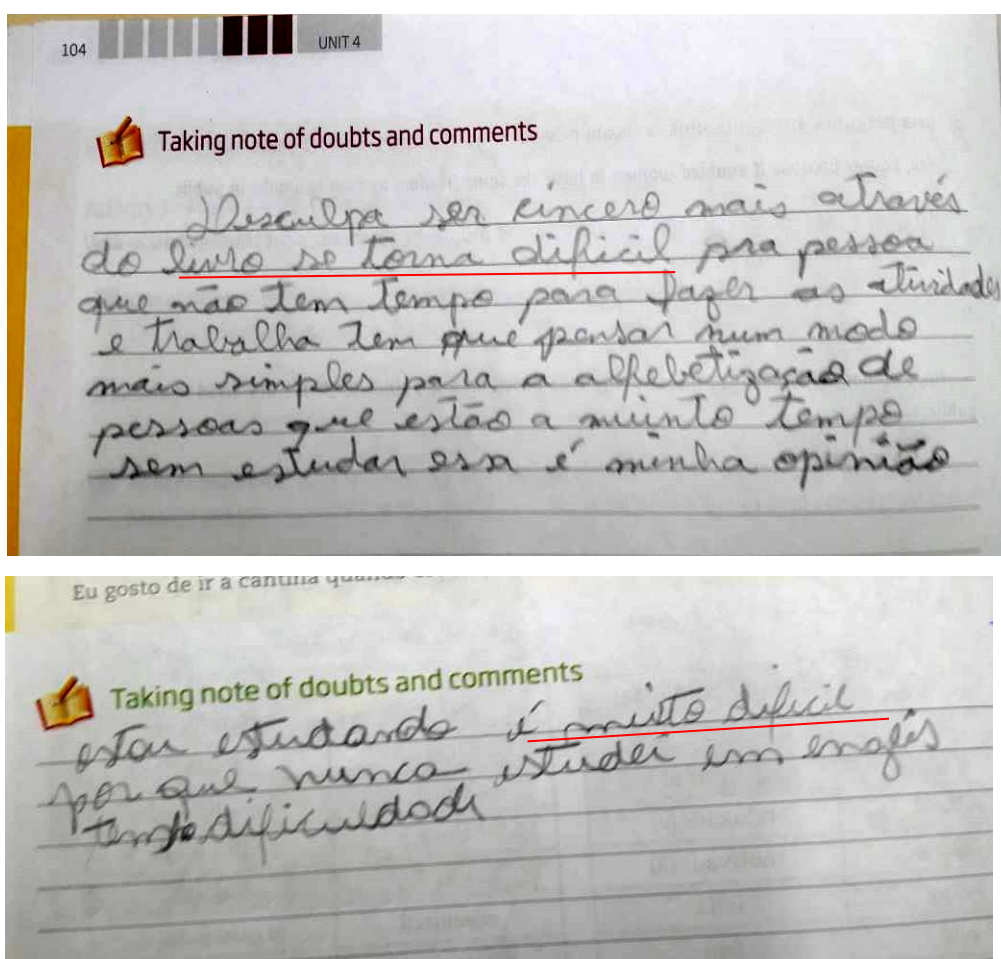 104 UNIT 4
Taking note of doubts and comments
Desculpa ser cincero mais através
do livro se torna dificil pra pessoa
que não tem tempo para fazer as atividades
e trabalha tem que pensar num modo
mais simples para a alfebetização de
pessoas que estão a muinto tempo
sem estudar essa é minha opinião
Eu gosto de ir à cantina
Taking note of doubts and comments
estou estudando é muito dificil
por que nunca estudei em englês
tenho dificuldade